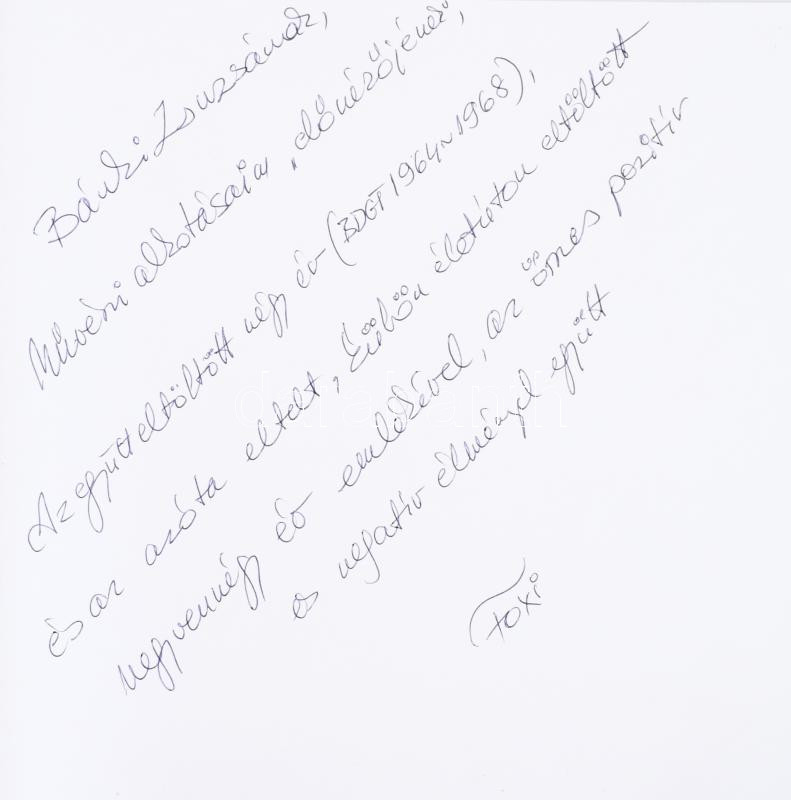 Bánki Zsuzsának,
Művészi alkotásaim „előnézőjének”,
Az együtt eltöltött négy év (BDGT 1964~1968),
és az azóta eltelt, külön életúton eltöltött
negyvennégy év emlékével, az összes pozitív
és negatív élménnyel együtt
Foxi
darabanth